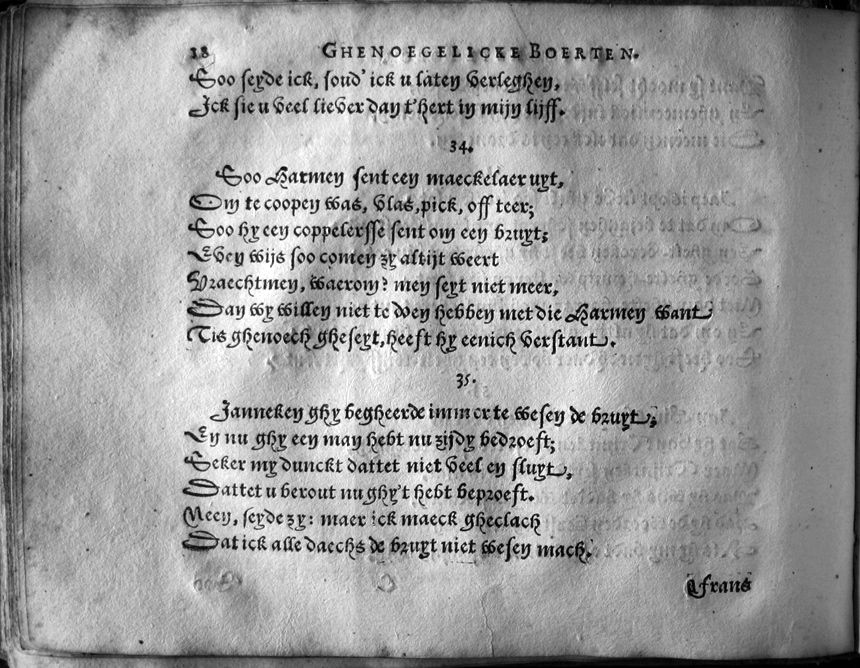 18 GHENOEGELICKE BOERTEN.
Soo seyde ick, soud' ick u laten verleghen,
Ick sie u veel liever dan t'hert in mijn lijff.
34.
Soo Harmen sent een maeckelaer uyt,
Om te coopen was, vlas, pick, off teer;
Soo hy een coppelersse sent om een bruyt;
Even wijs soo comen zy altijt weert
Vraechtmen, waerom? men seyt niet meer,
Dan wy willen niet te doen hebben met die Harmen want
Tis ghenoech gheseyt, heeft hy eenich verstant.
35.
Janneken ghy begheerde immer te wesen de bruyt,
En nu ghy een man hebt nu zijdy bedroeft;
Seker my dunckt dattet niet veel en sluyt,
Dattet u berout nu ghy't hebt beproeft.
Neen, seyde zy: maer ick maeck gheclach
Dat ick alle daechs de bruyt niet wesen mach.
Frans